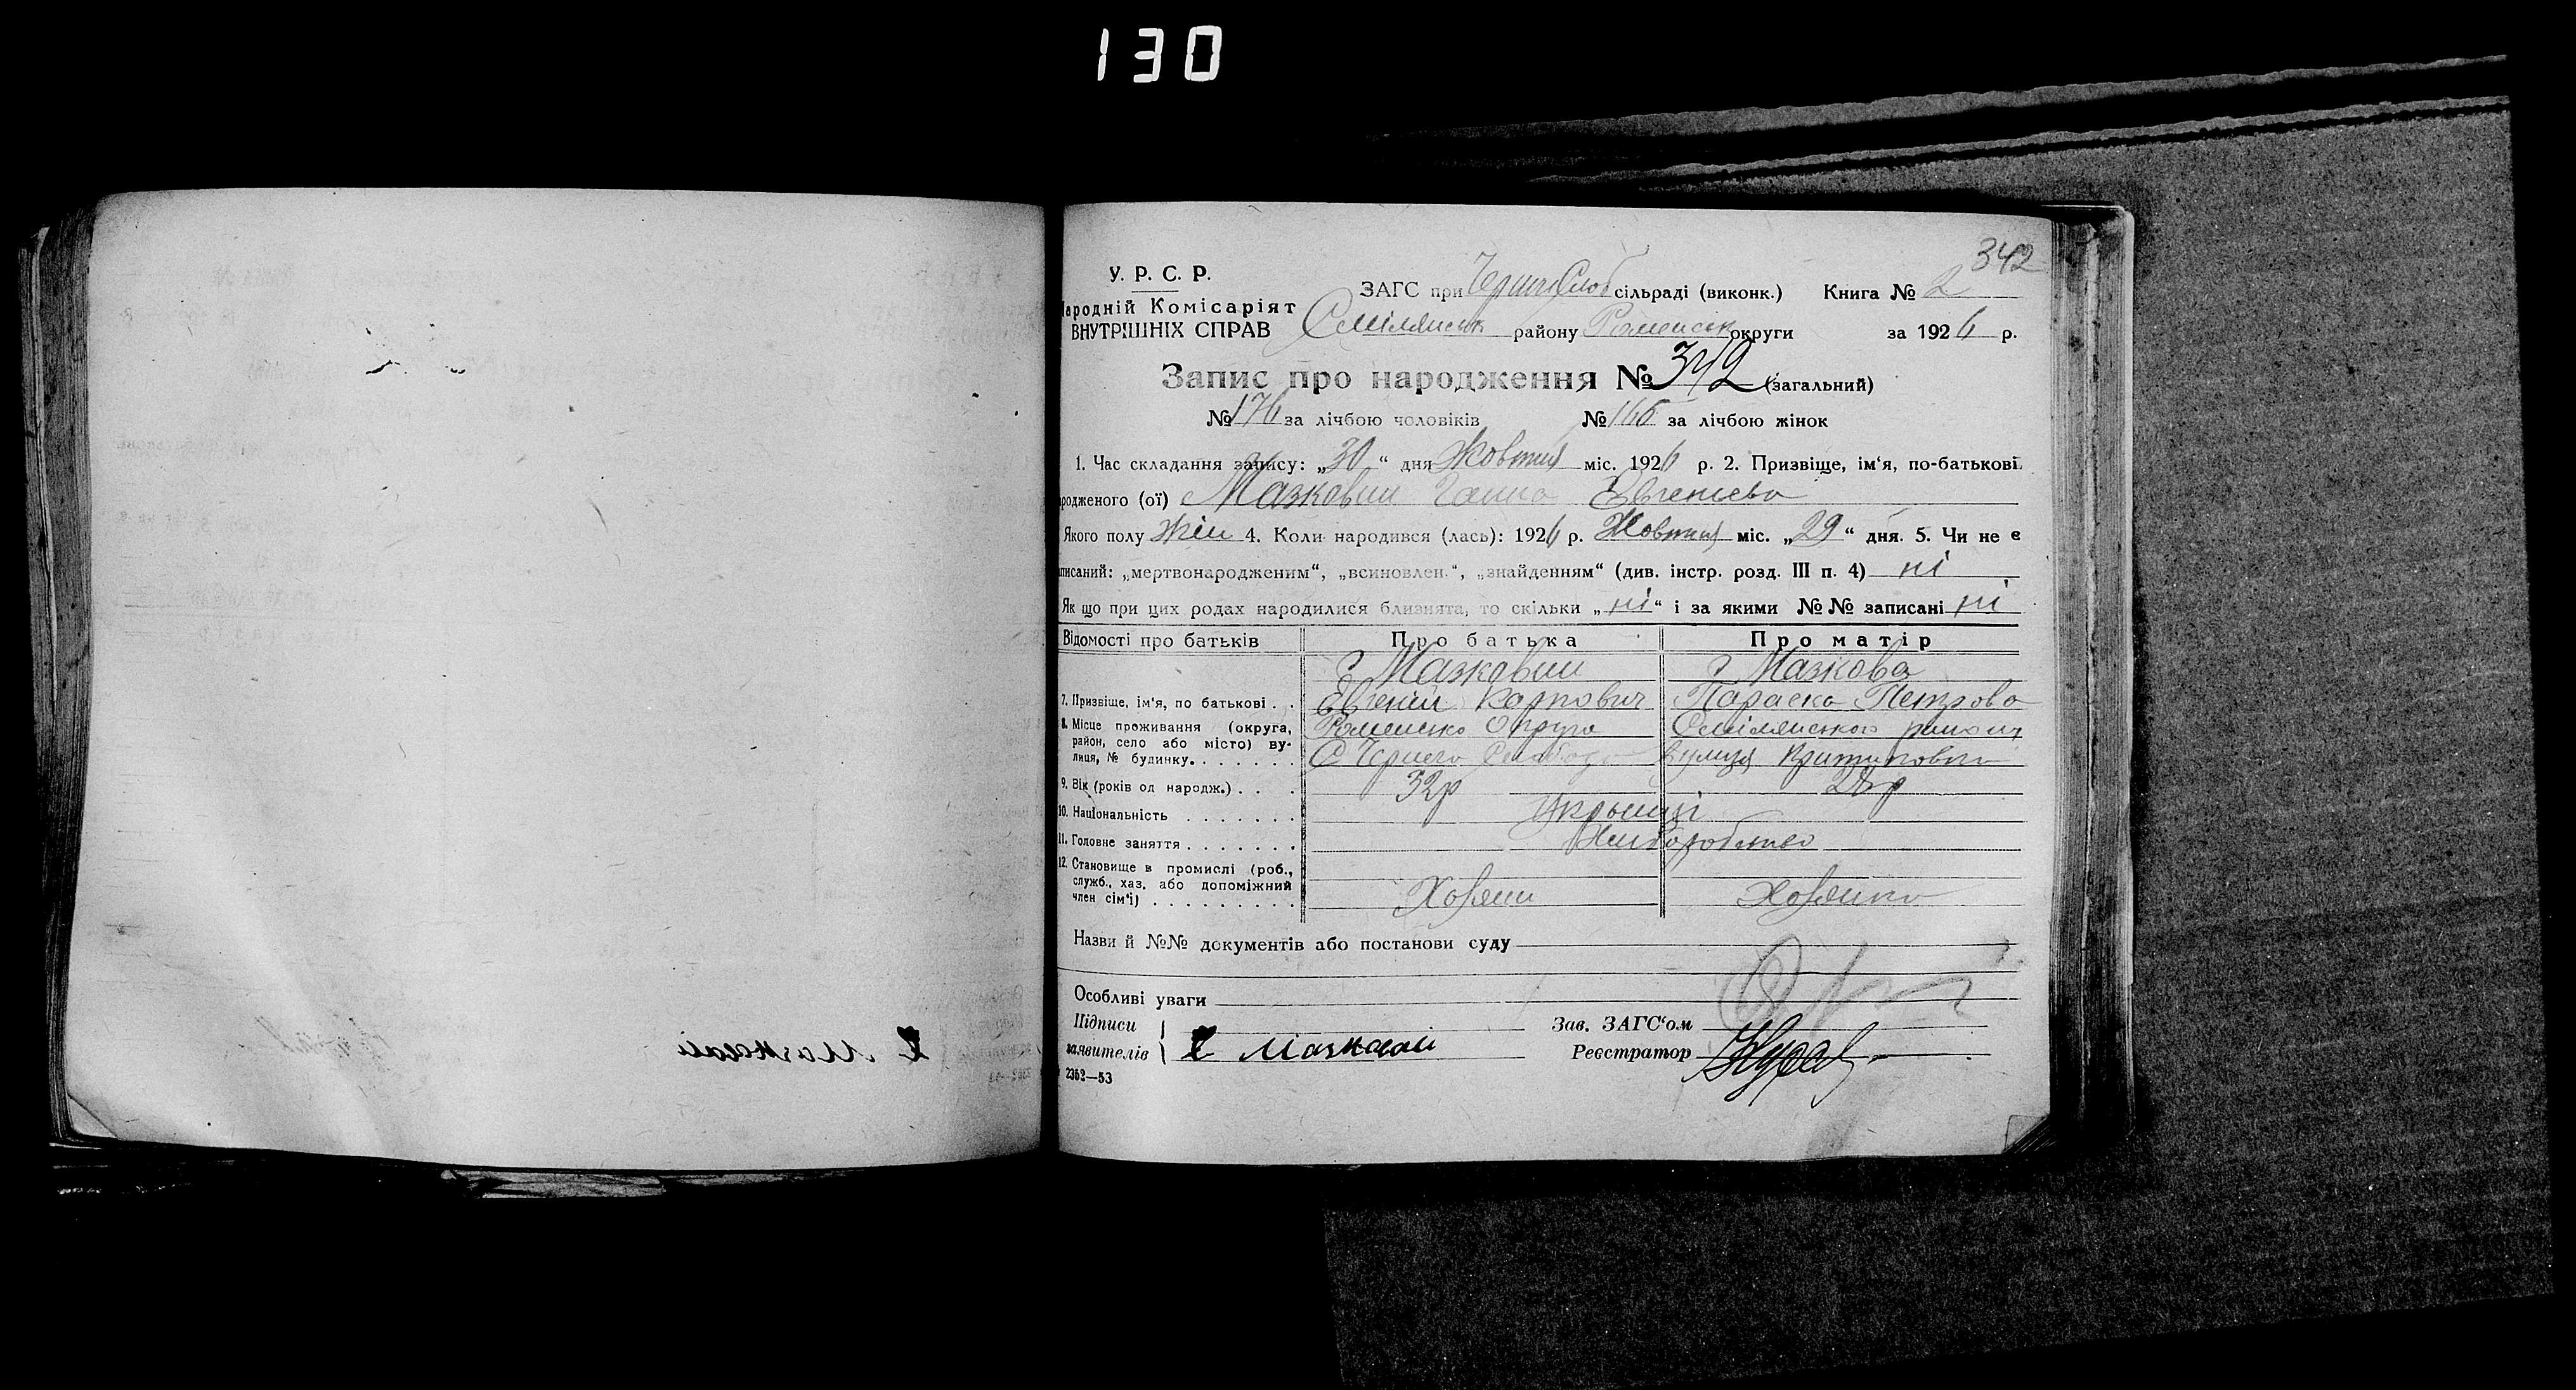 130
342
У. Р. С. Р.
Народній Комісаріят
ВНУТРІШНІХ СПРАВ
ЗАГС при Черн Слоб сільраді (виконк.) Книга № 2
Смілянськ району Роменськ округи за 1926 р.
Запис про народження № 342 (загальний)
№ 176 за лічбою чоловіків № 166 за лічбою жінок
1. Час складання запису: „30“ дня Жовтня міс. 1926 р. 2. Призвіще, ім‘я, по-батькові
родженого (ої) Мазковий Ганна Евгенієва
Якого полу жін 4. Коли народився (лась): 1926 р. Жовтня міс. „29“ дня. 5. Чи не є
писаний: „мертвонародженим“, „всиновлен.“, „знайденням“ (див. інстр. розд. III п. 4) ні
Як що при цих родах народилися близнята, то скільки „ні“ і за якими №№ записані ні
Відомості про батьків Про батька Про матір
Мазковий Мазкова
7. Призвіще, ім‘я, по батькові . . Евгеній Карпович Параска Петрова
8. Місце проживання (округа, Роменсько Округа Смілянського району
район, село або місто) ву-
лиця, № будинку. . . . . . . С Чернеча Слобода вулиця
9. Вік (років од народж.) . . . 32р 28р
10. Національність . . . . . . . Украінці
11. Головне заняття . . . . . . . Хліборобство
12. Становище в промислі (роб.,
служб., хаз. або допоміжний
член сім‘ї) . . . . . . . . . Хозяин Хозяйка
Назви й №№ документів або постанови суду
Особливі уваги
Підписи Зав. ЗАГС‘ом
заявителів Є Мазковий Реєстратор
2352—53